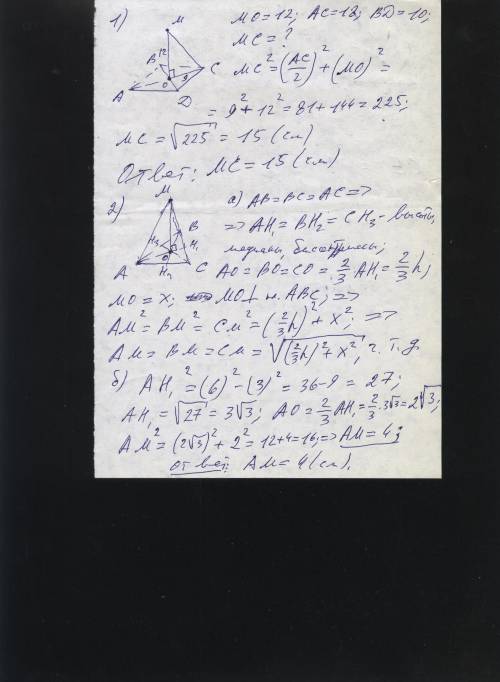 1)
M
B 12
O 9 C
A
D
MO = 12; AC = 18; BD = 10;
MC = ?
MC² = (AC/2)² + (MO)² =
= 9² + 12² = 81 + 144 = 225;
MC = √225 = 15 (см)
Ответ: MC = 15 (см)
2)
M
B
H₃ H₁
O
A H₂ C
а) AB = BC = AC =>
=> AH₁ = BH₂ = CH₃ - высоты,
медианы, биссектрисы;
AO = BO = CO = 2/3 AH₁ = 2/3 h;
MO = x; MO ⊥ пл. ABC; =>
AM² = BM² = CM² = (2/3 h)² + x²; =>
AM = BM = CM = √((2/3 h)² + x²), ч.т.д.
б) AH₁² = (6)² - (3)² = 36 - 9 = 27;
AH₁ = √27 = 3√3; AO = 2/3 AH₁ = 2/3 · 3√3 = 2√3;
AM² = (2√3)² + 2² = 12 + 4 = 16; => AM = 4;
ответ: AM = 4 (см).